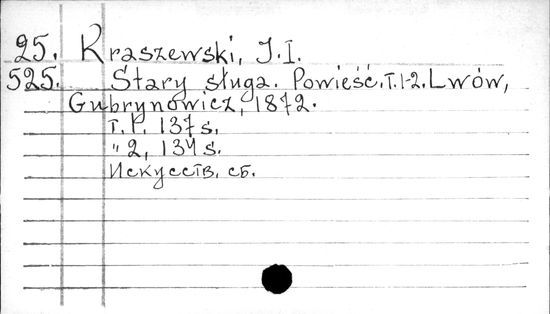 25. Kraszewski, J.I.
525. Stary sługa. Powieść. T.1-2. Lwów,
Gubrynowicz, 1872.
T.1. 137 s.
" 2, 134 s.
Искусств. сб.